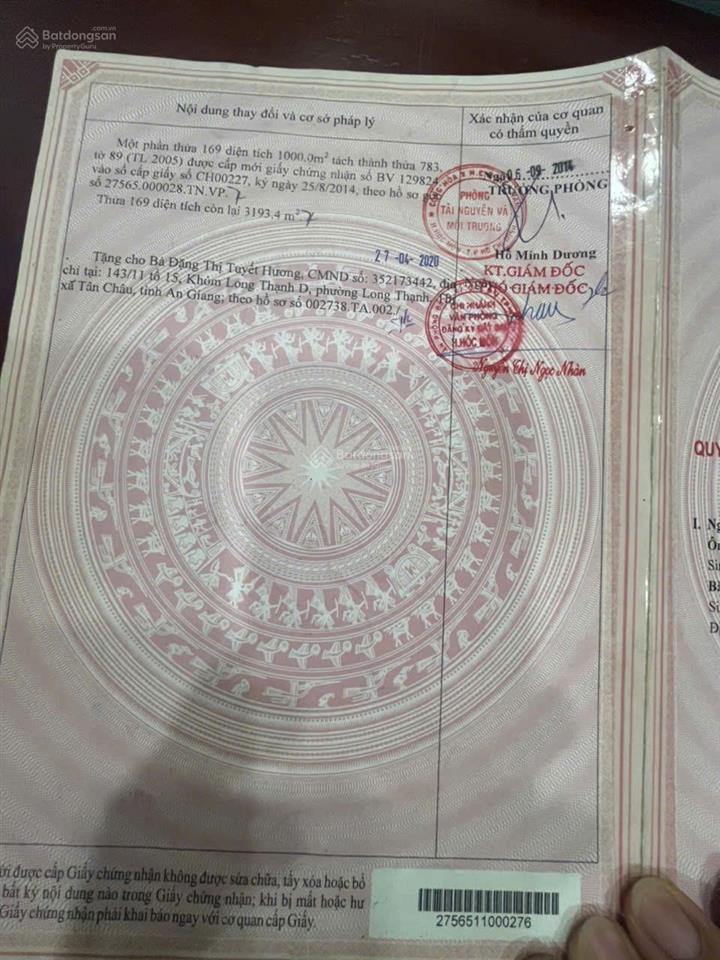 Batdongsan.com.vn
by PropertyGuru
Nội dung thay đổi và cơ sở pháp lý
Xác nhận của cơ quan
có thẩm quyền
Một phần thửa 169 diện tích 1000,0m² tách thành thửa 783,
tờ 89 (TL 2005) được cấp mới giấy chứng nhận số BV 129824
vào sổ cấp giấy số CH00227, ký ngày 25/8/2014, theo hồ sơ
số 27565.000028.TN.VP.
Thửa 169 diện tích còn lại 3193,4 m².
06-09-2014
TRƯỞNG PHÒNG
PHÒNG
TÀI NGUYÊN VÀ
MÔI TRƯỜNG
Hồ Minh Dương
27-04-2020
Tặng cho Bà Đặng Thị Tuyết Hương, CMND số: 352173442, địa
chỉ tại: 143/11 tổ 15, Khóm Long Thạnh D, phường Long Thạnh,
xã Tân Châu, tỉnh An Giang; theo hồ sơ số 002738.TA.002./
KT.GIÁM ĐỐC
PHÓ GIÁM ĐỐC
CHI NHÁNH
VĂN PHÒNG
ĐĂNG KÝ ĐẤT ĐAI
H.HÓC MÔN
Nguyễn Thị Ngọc Nhàn
Batdongsan
by PropertyGuru
QUY
I. Ng
Ôn
Sin
Bà
Si
Đ
được cấp Giấy chứng nhận không được sửa chữa, tẩy xóa hoặc bổ
bất kỳ nội dung nào trong Giấy chứng nhận; khi bị mất hoặc hư
Giấy chứng nhận phải khai báo ngay với cơ quan cấp Giấy.
2756511000276